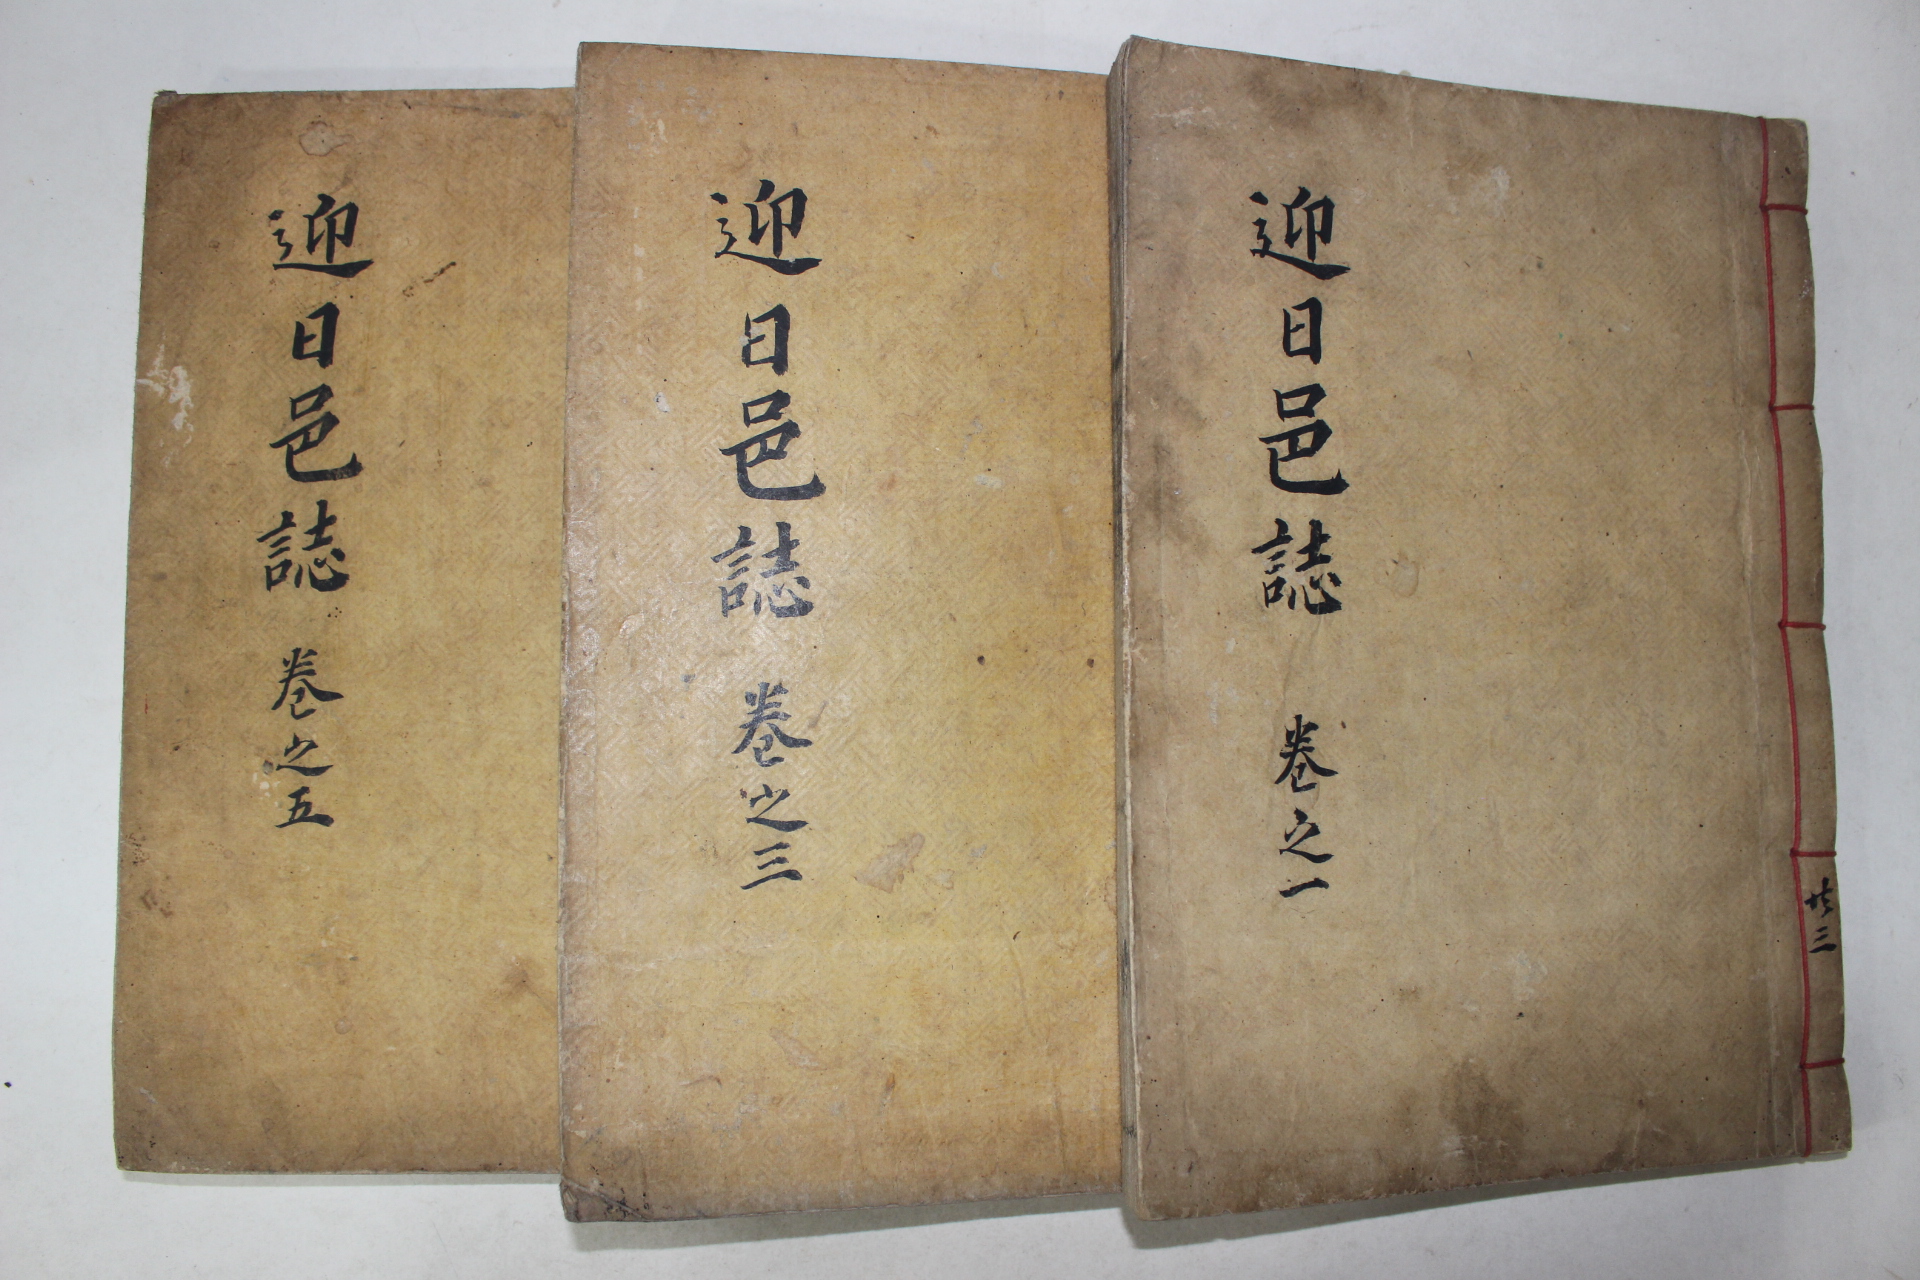 迎日邑誌 卷之一
共三
迎日邑誌 卷之三
迎日邑誌 卷之五